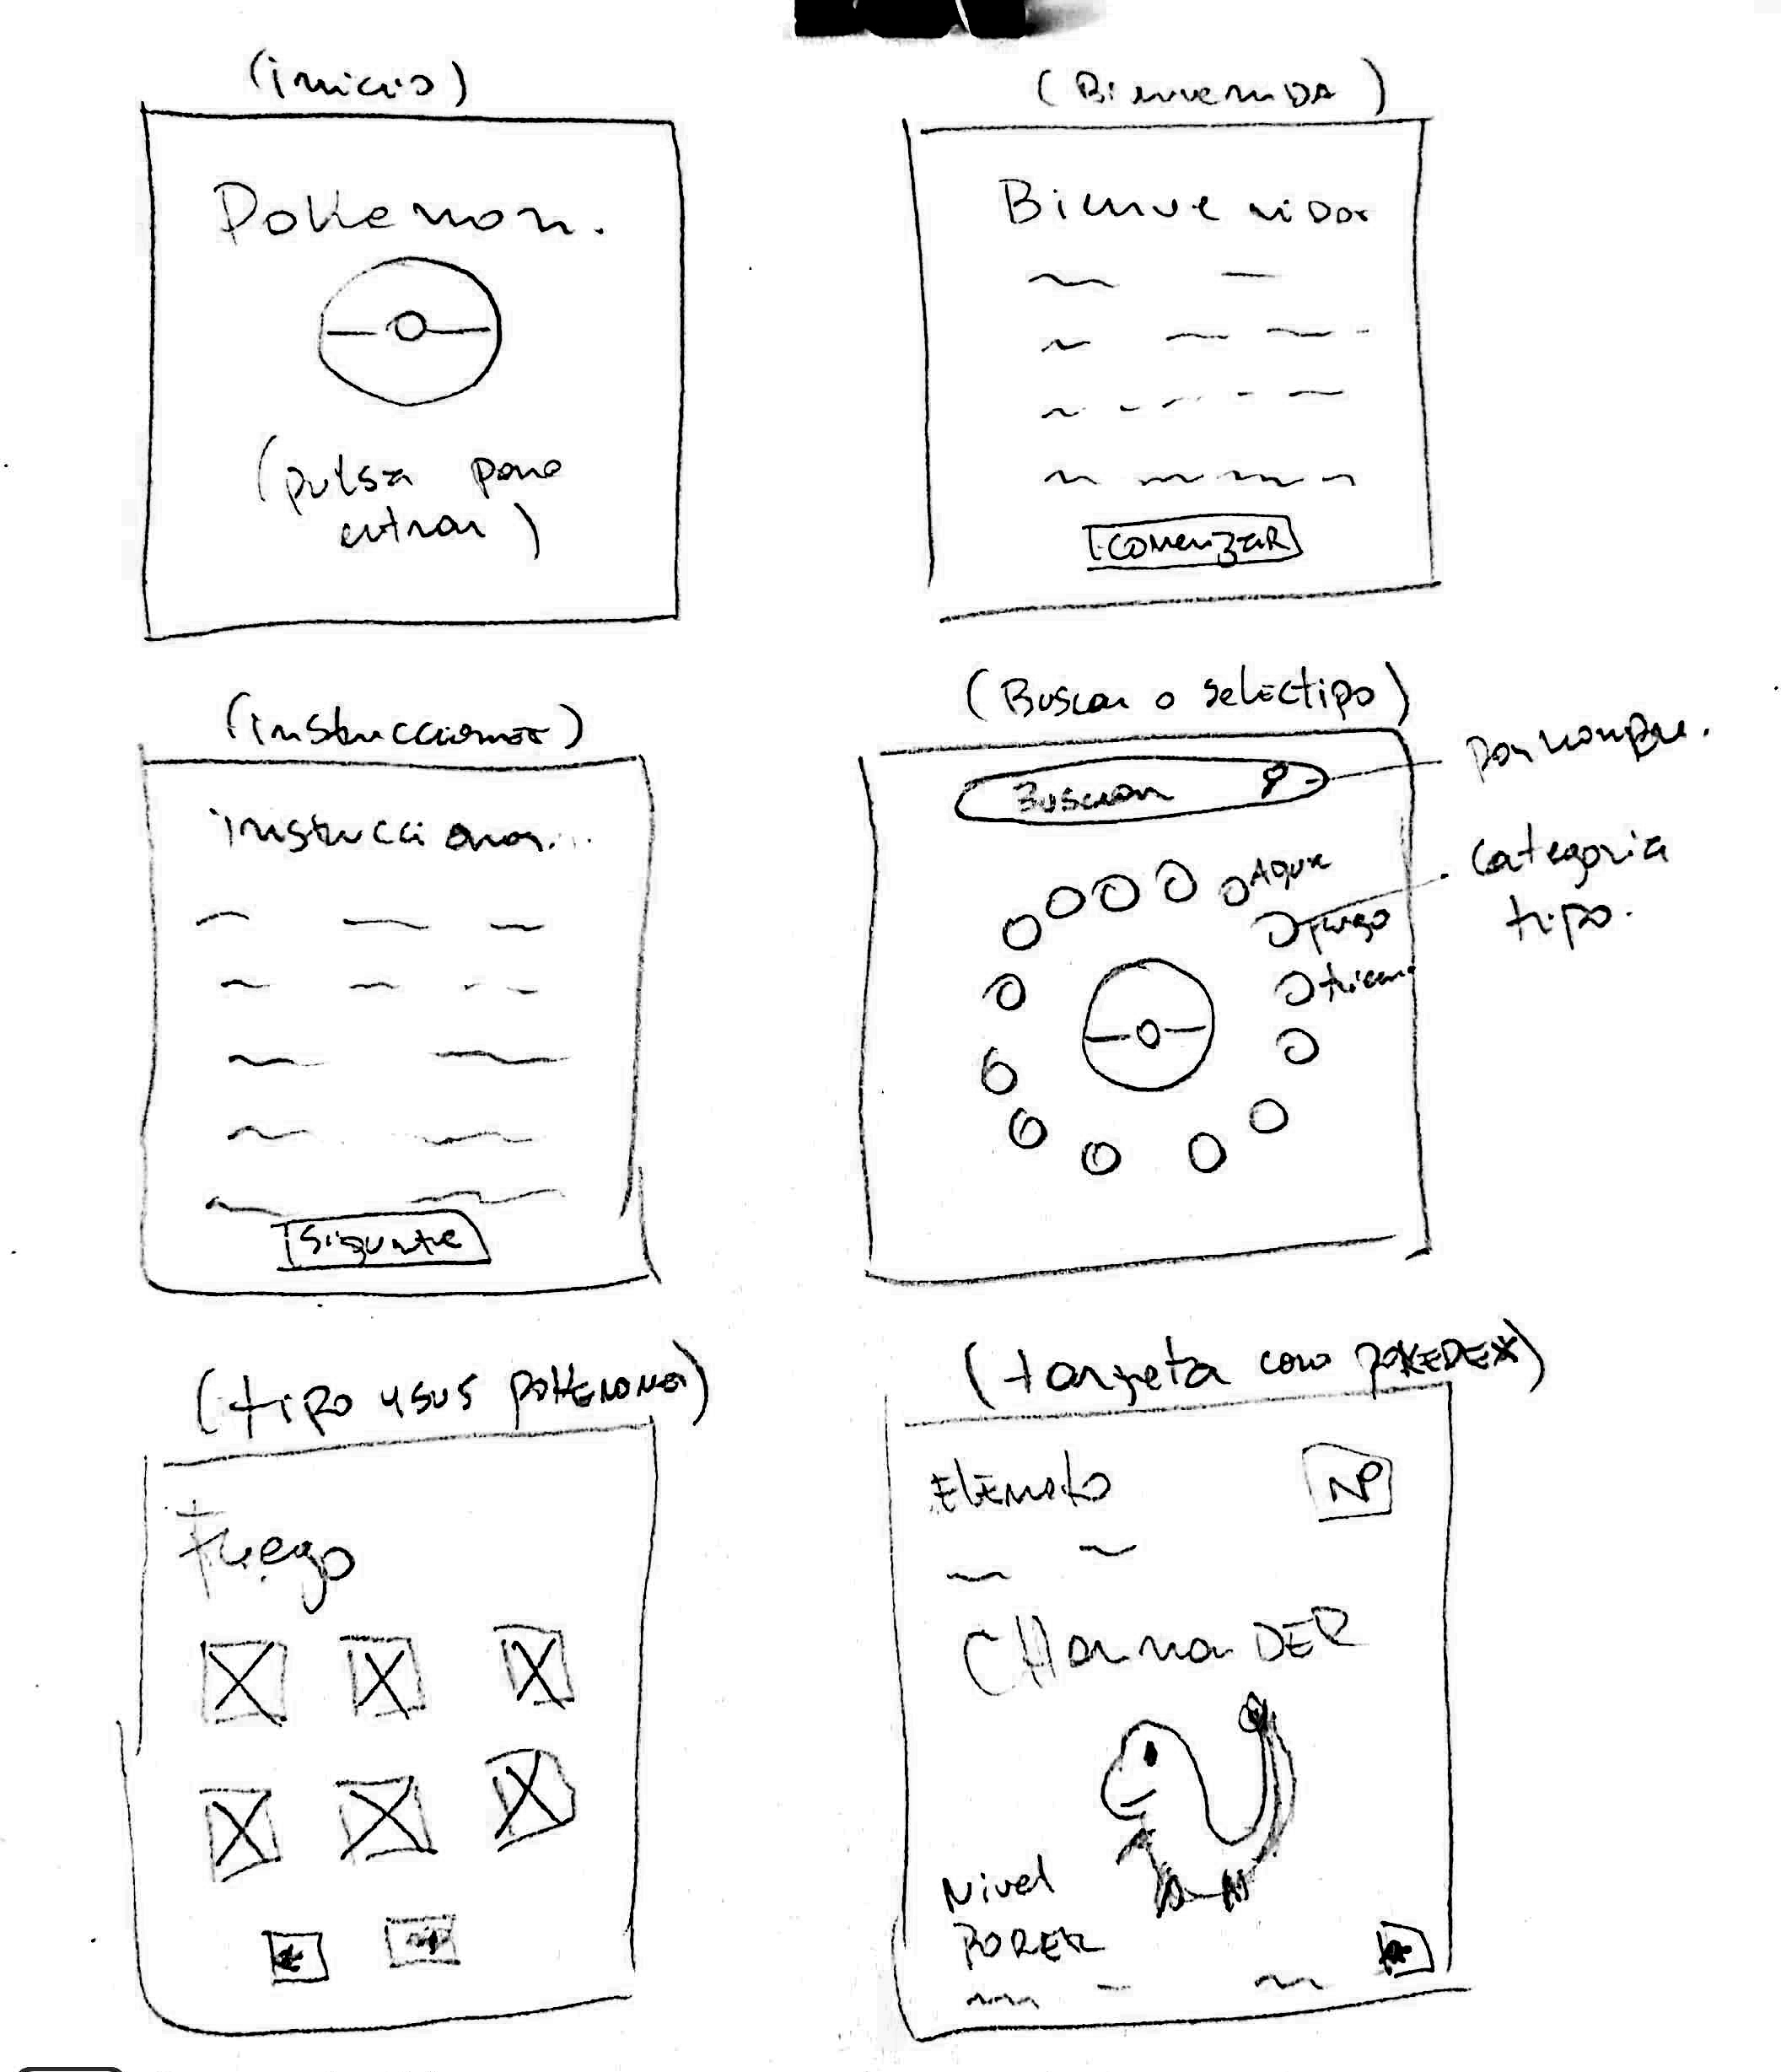 (inicio)
Pokemon.
(pulsa para
entrar)
(Bienvenida)
Bienvenidos
comenzar
(Instrucciones)
instrucciones...
Siguiente
(Buscar o selectipo)
Buscar
por nombre.
Agua
Categoria
tipo.
fuego
(tipo y sus pokemones)
Fuego
(targeta con POKEDEX)
ELEMENTO
Nº
CHarmanDER
Nivel
PODER